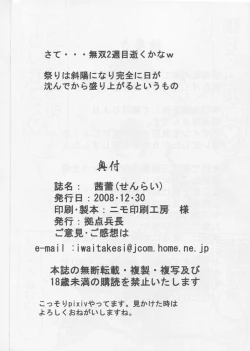 さて・・・無双2週目逝くかなｗ
祭りは斜陽になり完全に日が
沈んでから盛り上がるというもの
奥付
誌名： 茜蕾(せんらい)
発行日：2008･12･30
印刷･製本：ニモ印刷工房　様
発行：拠点兵長
ご意見･ご感想は
e-mail :iwaitakesi@jcom.home.ne.jp
本誌の無断転載・複製・複写及び
18歳未満の購読を禁止いたします
こっそりpixivやってます。見かけた時は
よろしくおねがいしますね。